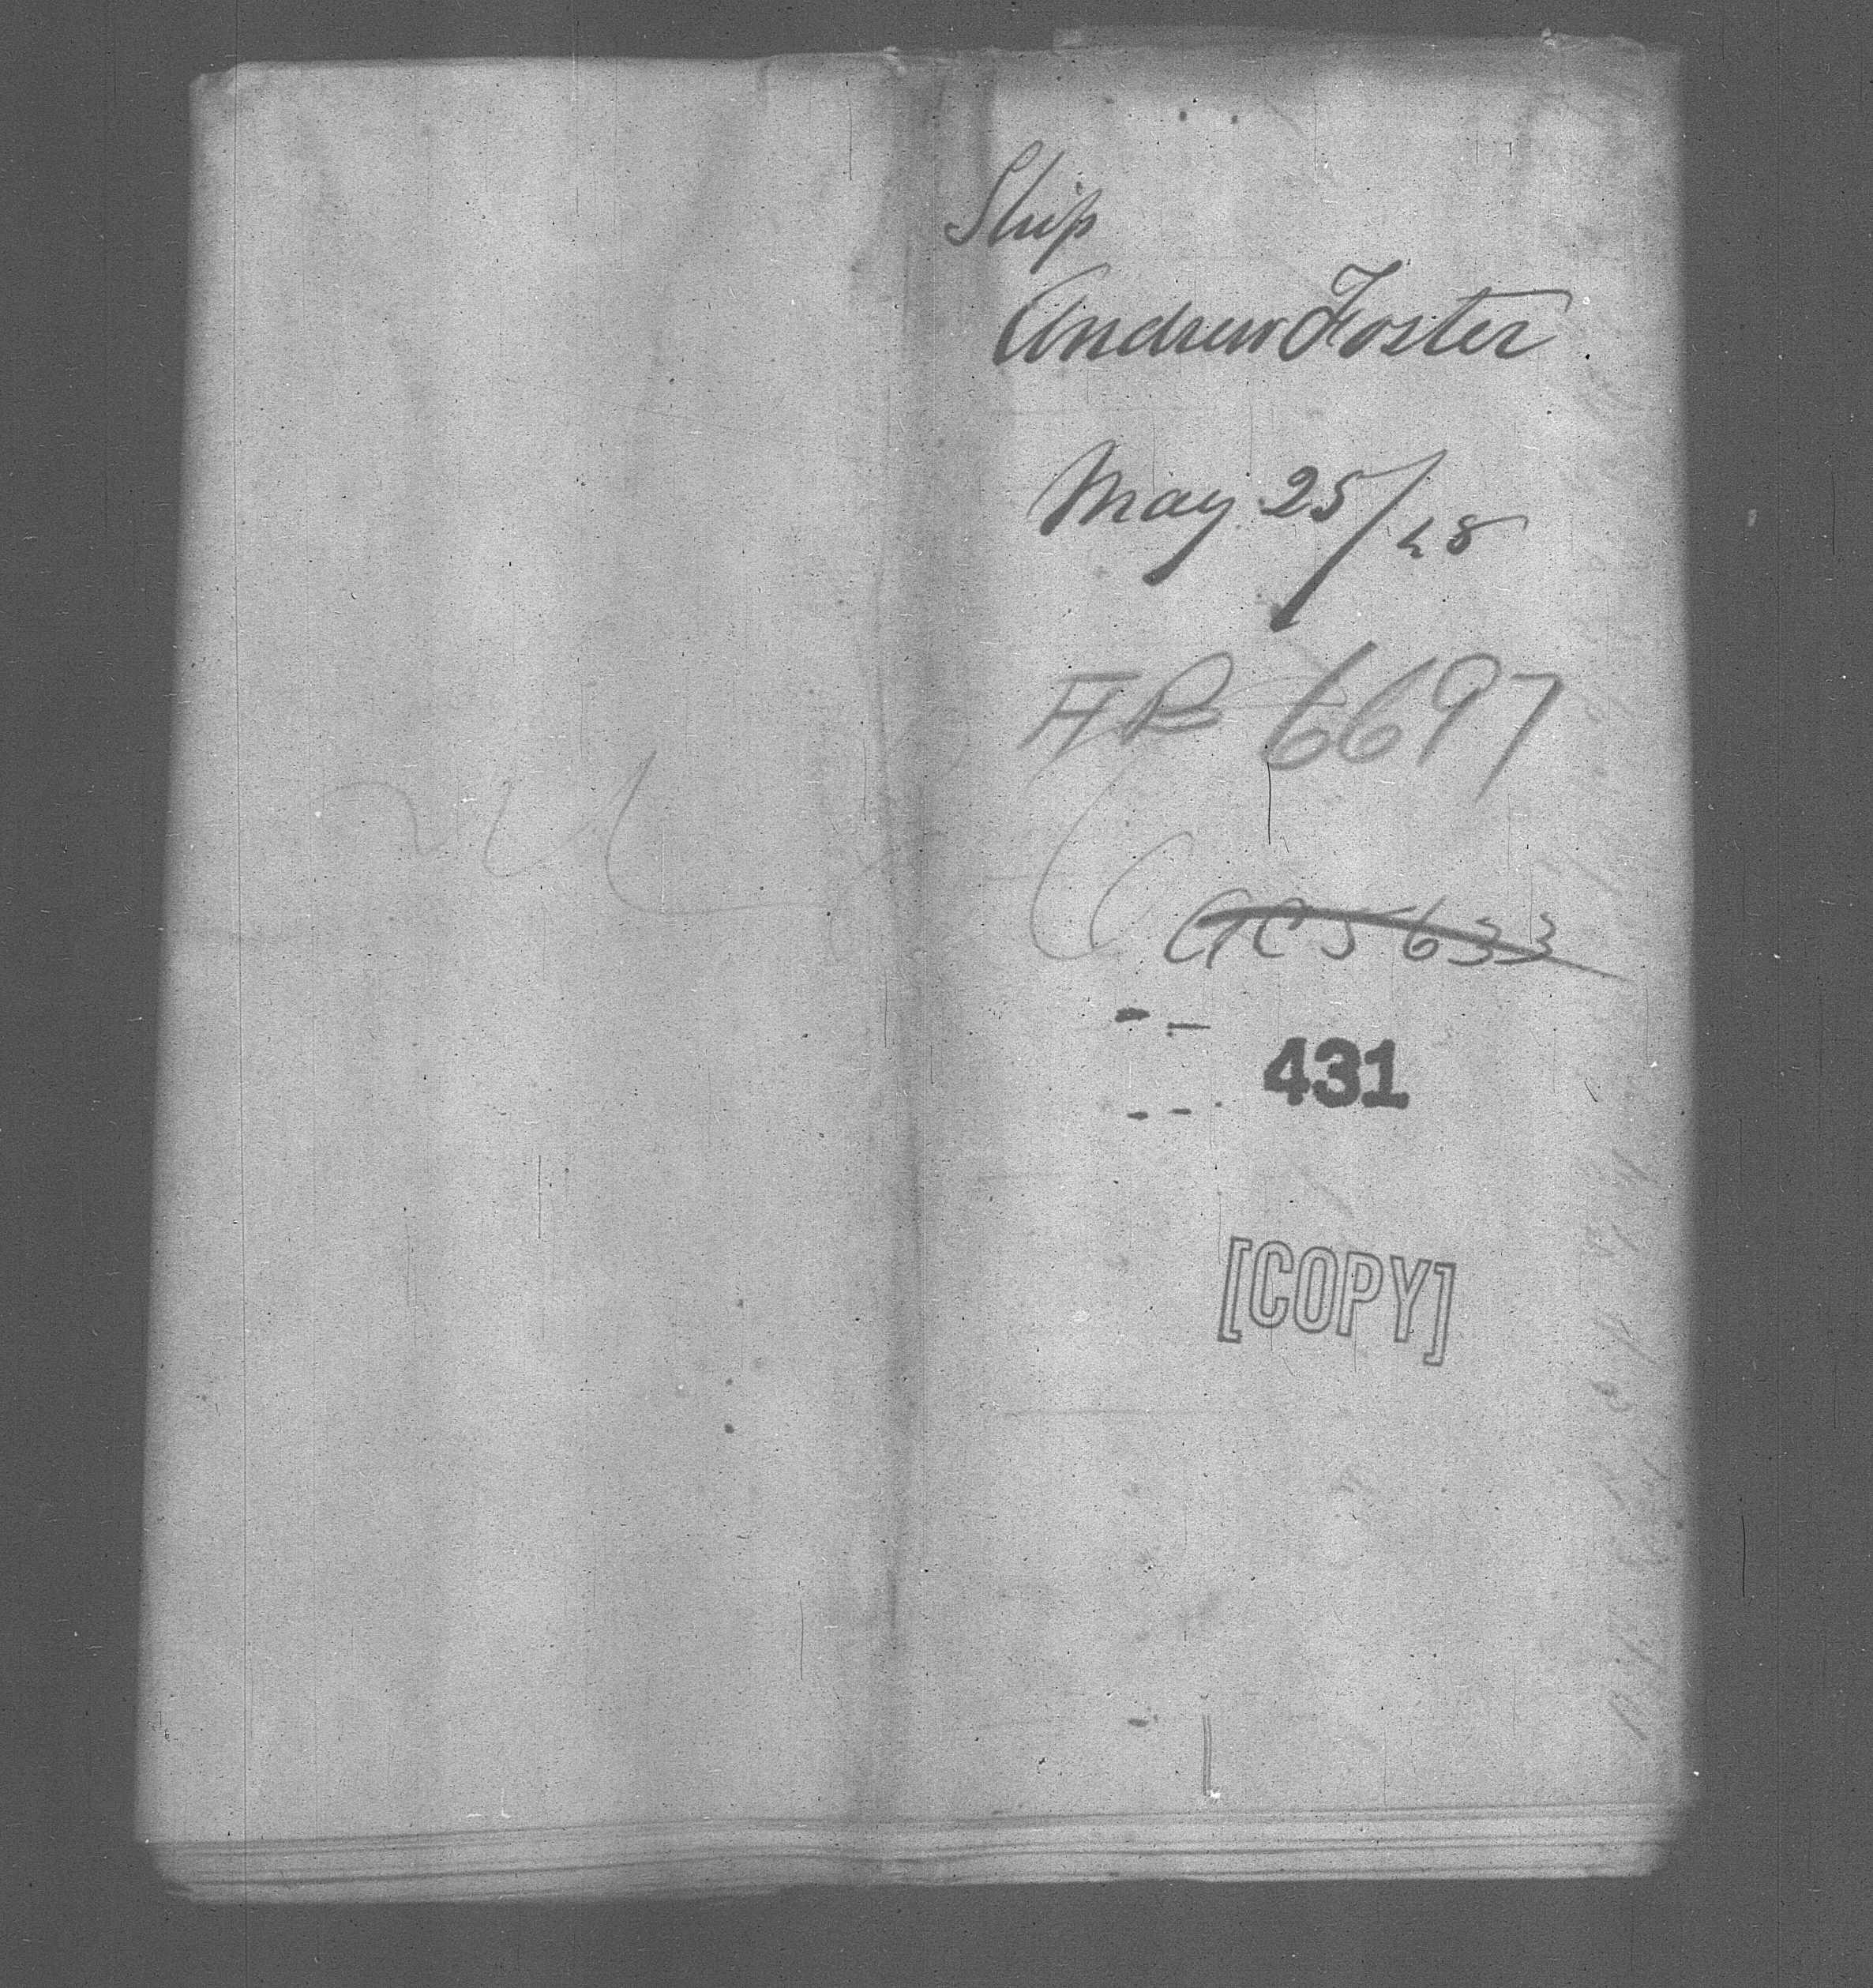 Ship
Andrew Foster
May 25/48
6697
GC5633
431
[COPY]